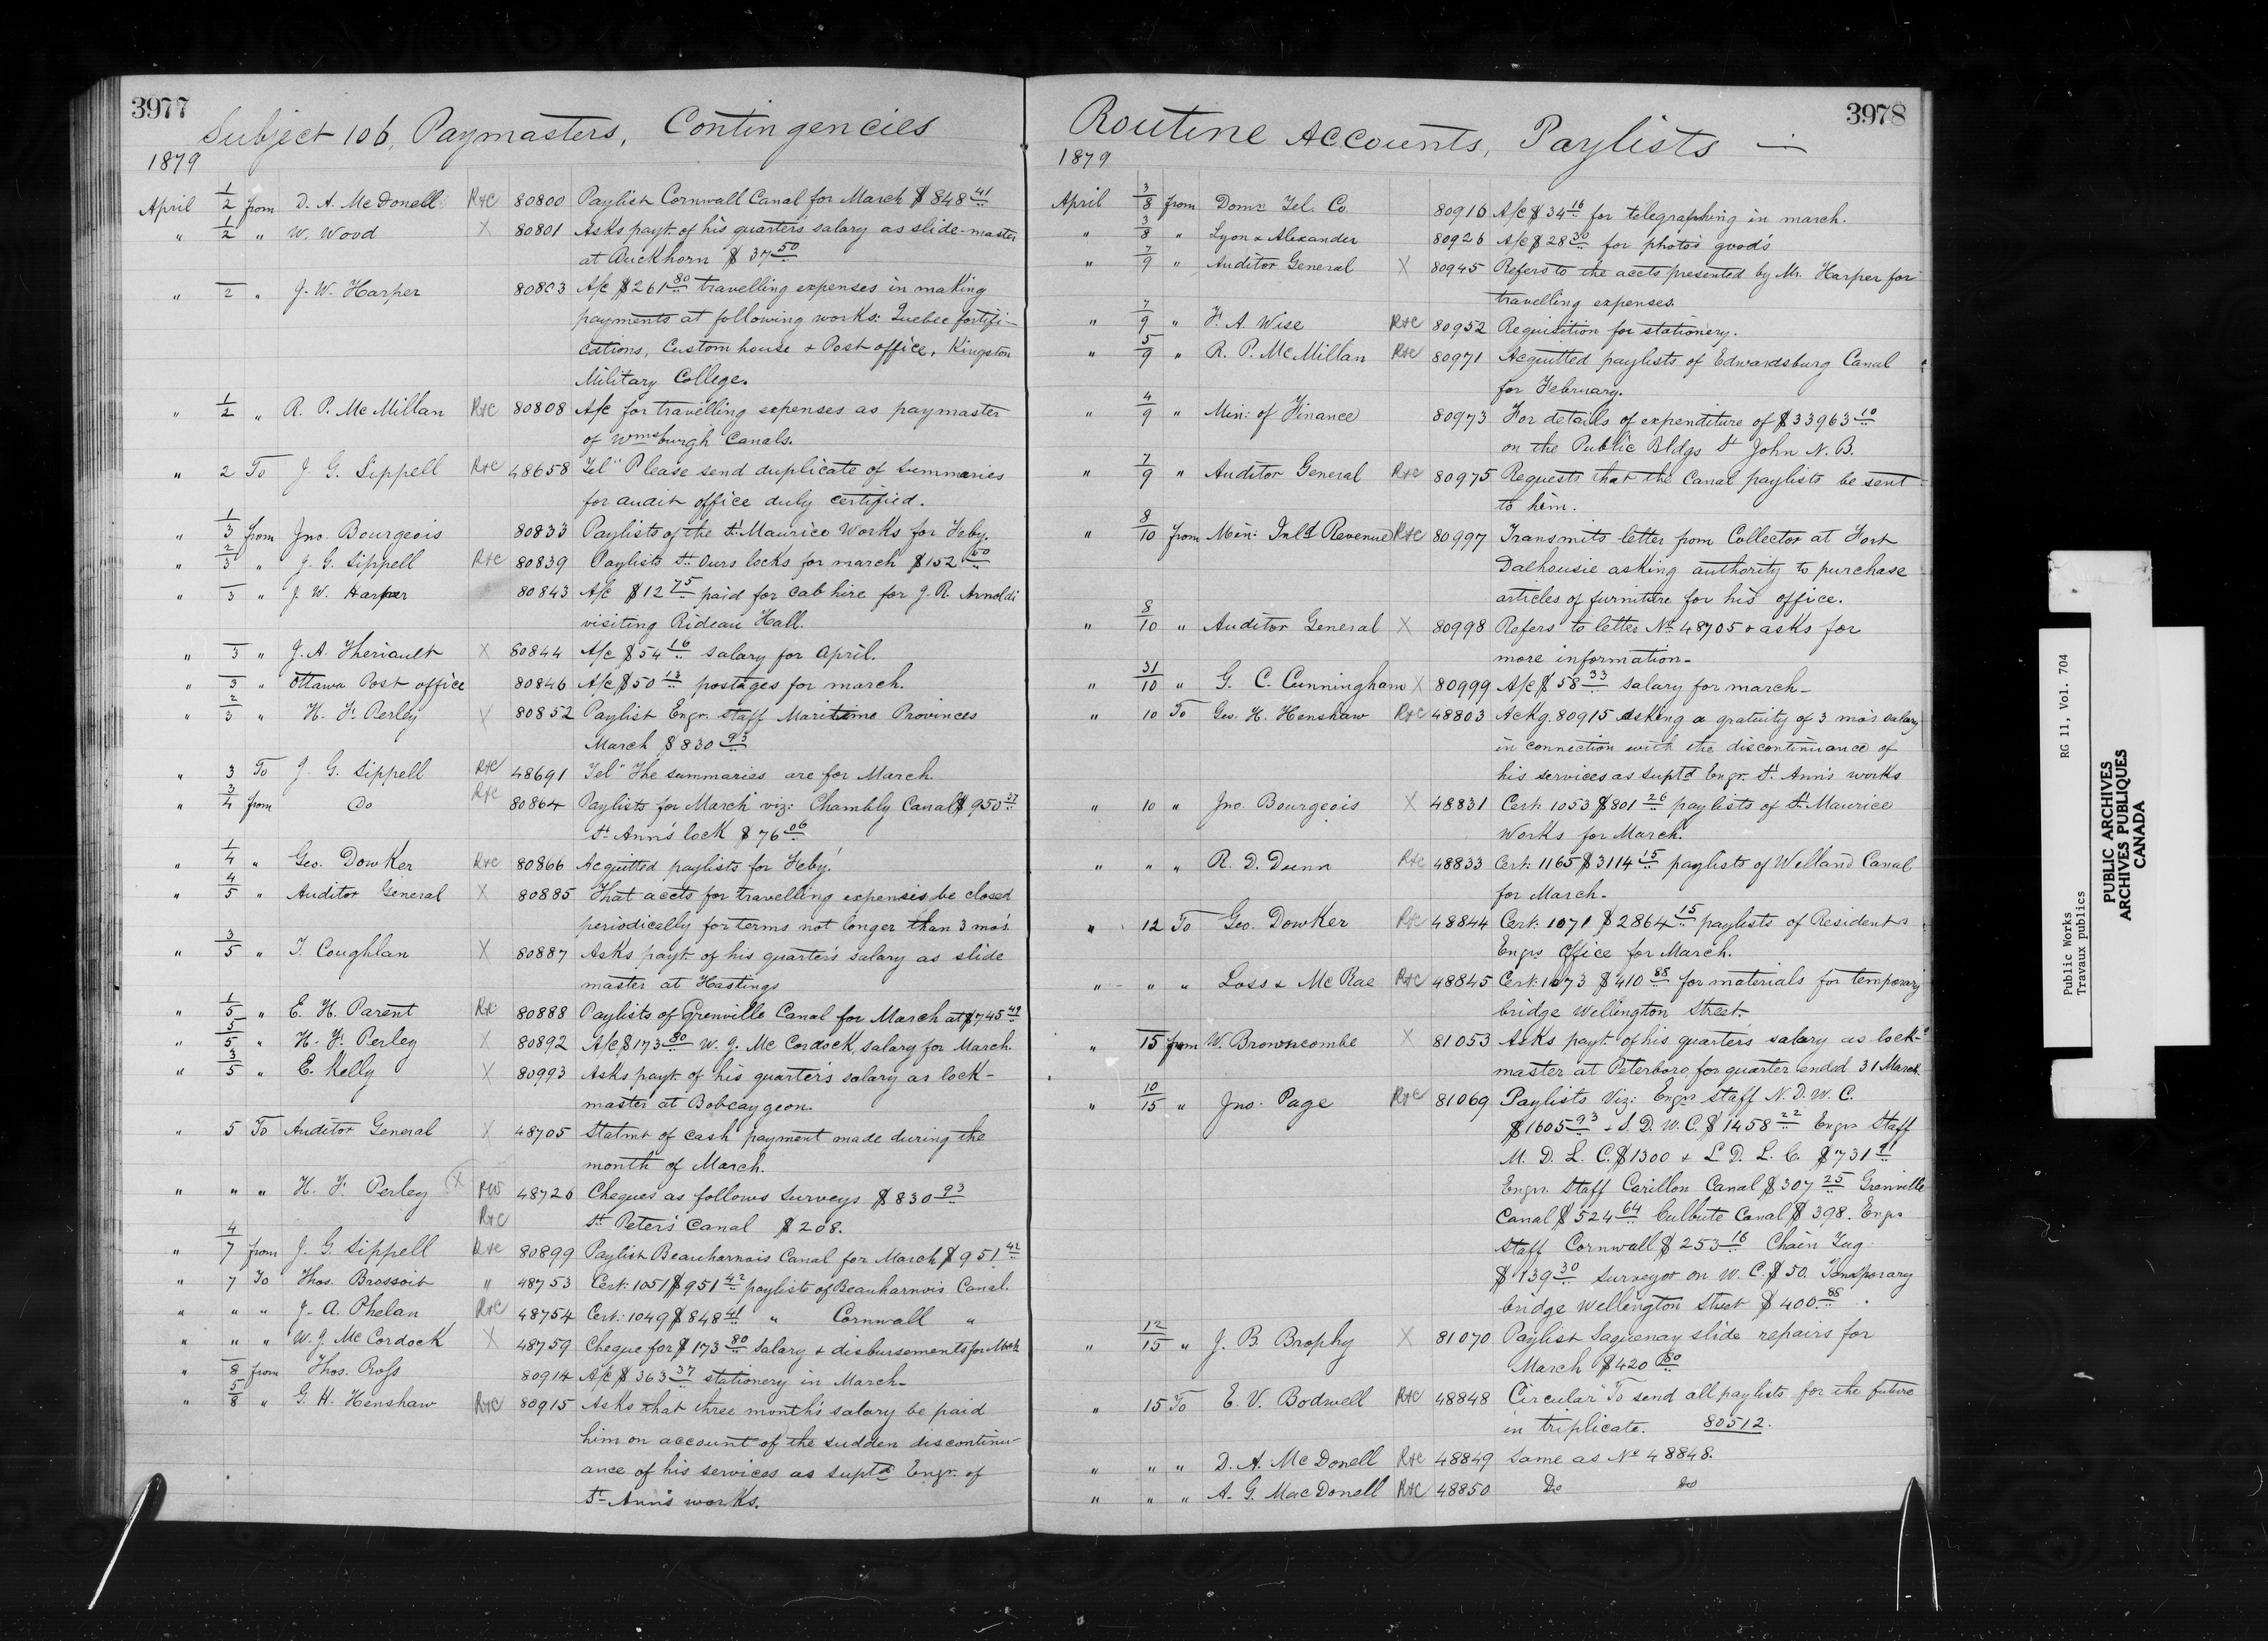 3977
Subject 106, Paymasters, Contingencies
1879
April 1/2 from D. A. McDonell R+C 80800 Paylist Cornwall Canal for March $848 41
" 1/2 " W. Wood X 80801 Asks payt of his quarter's salary as slide-master
at Buckhorn $37 50
" 2 " J. W. Harper 80803 A/c $261 80 travelling expenses in making
payments at following works: Quebec fortifi-
cations, Custom house & Post office, Kingston
Military College.
" 1/2 " R. P. McMillan R+C 80808 A/c for travelling expenses as paymaster
of Wmsburgh Canals.
" 2 To J. G. Sippell R+C 48658 Tel" Please send duplicate of Summaries
for audit office duly certified.
" 1/3 from Jno. Bourgeois 80833 Paylists of the St Maurice Works for Feby.
" 2/3 " J. G. Sippell R+C 80839 Paylists St Ours locks for march $152 50
" 3 " J. W. Harper 80843 A/c $12 75 paid for cab hire for J. R. Arnoldi
visiting Rideau Hall.
" 3 " J. A. Theriault X 80844 A/c $54 16 salary for April.
" 3 " Ottawa Post office 80846 A/c $50 13 postages for march.
" 2/3 " H. F. Perley X 80852 Paylist Engr. staff Maritime Provinces
March $830 93
" 3 To J. G. Sippell R+C 48691 Tel" The summaries are for March.
" 3/4 from Do R+C 80864 Paylists for March viz: Chambly Canal $950 27
St Ann's lock $76 06
" 1/4 " Geo. Dowker R+C 80866 Acquitted paylists for Feby.
" 4/5 " Auditor General X 80885 That accts for travelling expenses be closed
periodically for terms not longer than 3 mos.
" 3/5 " T. Coughlan X 80887 Asks payt of his quarter's salary as slide
master at Hastings
" 1/5 " E. H. Parent R+C 80888 Paylists of Grenville Canal for March at $745 49
" 5/5 " H. F. Perley X 80892 A/c $173 80 W. J. McCordock, salary for March.
" 3/5 " E. Kelly X 80993 Asks payt. of his quarter's salary as lock-
master at Bobcaygeon.
" 5 To Auditor General X 48705 Statmt of cash payment made during the
month of March.
" " " H. F. Perley X RW 48726 Cheques as follows Surveys $830 93
R+C St Peter's Canal $208.
" 4/7 from J. G. Sippell R+C 80899 Paylist Beauharnois Canal for March $951 42
" 7 To Thos. Brossoit " 48753 Cert. 1051 $951 42 paylists of Beauharnois Canal.
" " " J. A. Phelan R+C 48754 Cert. 1049 $848 41 " Cornwall "
" " " W. J. McCordock X 48759 Cheque for $173 80 salary & disbursements for Mch
" 8 from Thos. Ross 80914 A/c $363 37 stationery in March.
" 5/8 " G. H. Henshaw R+C 80915 Asks that three month's salary be paid
him on account of the sudden discontinu-
ance of his services as suptd Engr. of
St Ann's works.
3978
Routine Accounts, Paylists —
1879
April 3/8 from Domn Tel. Co. 80916 A/c $34 16 for telegraphing in march.
" 3/8 " Lyon & Alexander 80926 A/c $28 30 for photo's good's
" 7/9 " Auditor General X 80945 Refers to the accts presented by Mr. Harper for
travelling expenses.
" 7/9 " F. A. Wise R+C 80952 Requisition for stationery.
" 5/9 " R. P. McMillan R+C 80971 Acquitted paylists of Edwardsburg Canal
for February.
" 4/9 " Min: of Finance 80973 For details of expenditure of $33963 10
on the Public Bldgs St John N. B.
" 7/9 " Auditor General R+C 80975 Requests that the Canal paylists be sent
to him.
" 8/10 from Min: Inld Revenue R+C 80997 Transmits letter from Collector at Port
Dalhousie asking authority to purchase
articles of furniture for his office.
" 8/10 " Auditor General X 80998 Refers to letter No 48705 & asks for
more information.
" 31/10 " G. C. Cunningham X 80999 A/c $58 33 salary for march.
" 10 To Geo. H. Henshaw R+C 48803 Ackg. 80915 Asking a gratuity of 3 mo's salary
in connection with the discontinuance of
his services as Suptd Engr. St Ann's works
" 10 " Jno. Bourgeois X 48831 Cert. 1053 $801 26 paylists of St Maurice
Works for March.
" " " R. D. Dunn R+C 48833 Cert: 1165 $3114 15 paylists of Welland Canal
for March.
" 12 To Geo. Dowker R+C 48844 Cert: 1071 $2864 15 paylists of Resident
Engrs Office for March.
" " " Loss & McRae R+C 48845 Cert: 1073 $410 88 for materials for temporary
bridge Wellington Street.
" 15 from W. Browncombe X 81053 Asks payt of his quarter's salary as lock-
master at Peterboro, for quarter ended 31 March.
" 10/15 " Jno. Page R+C 81069 Paylists Viz: Engrs Staff N. D. W. C.
$1605 93 & S. D. W. C. $1458 22 Engrs Staff
M. D. L. C. $1300 & L. D. L. C. $731 91
Engrs. Staff Carillon Canal $307 25 Grenville
Canal $524 64 Culbute Canal $398. Engrs
Staff Cornwall $253 16 Chain Tug
$139 30 Surveyor on W. C. $50. Temporary
bridge Wellington Street $400 88.
" 12/15 " J. B. Brophy X 81070 Paylist Saguenay slide repairs for
March $420 80
" 15 To E. V. Bodwell R+C 48848 Circular" To send all paylists for the future
in triplicate. 80512.
" " " D. A. McDonell R+C 48849 Same as No 48848.
" " " A. G. MacDonell R+C 48850 Do Do
Public Works RG 11, Vol. 704
Travaux publics
PUBLIC ARCHIVES
ARCHIVES PUBLIQUES
CANADA